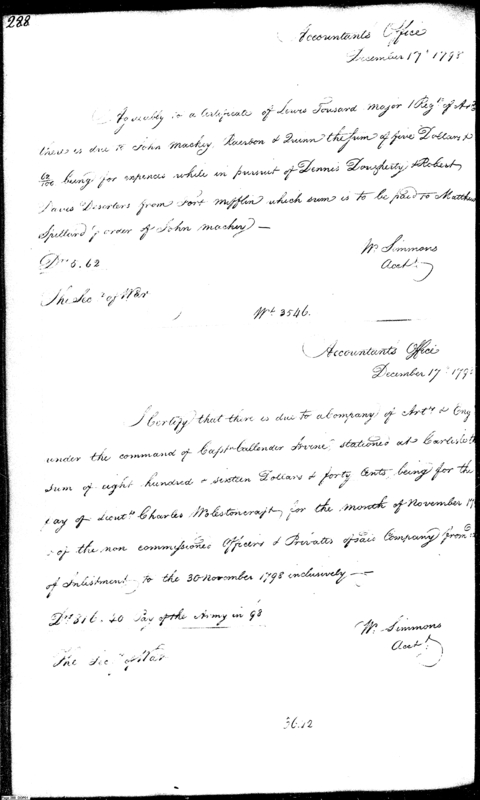 288
Accountants Office
December 17th 1798
Agreeably to a Certificate of Lewis Tousard major 1 Regt of Art
there is due to John Mackey, & Quinn the sum of five Dollars &
62/100 being for expences while in pursuit of Dennis Dougherty & Robert
Davis Deserters from Fort Mifflin which sum is to be paid to Matthew
Spillard pr order of John Mackey —
Drs 5.62
Wm Simmons
Acct.
The Secy of War
Wt 3546.
Accountants Office
December 17th 179
I Certify that there is due to a Company of Arty & Eng
under the command of Capt Callender Irvine, stationed at Carlisle the
sum of eight hundred & sixteen Dollars & forty Cents being for the
pay of Lieut Charles Wolstoncraft, for the month of November 17
& of the non commissioned Officers & Privates of said Company from
of Inlistment, to the 30 November 1798 inclusively —
Drs 816.40 Pay of the Army in 98
Wm Simmons
Acct.
The Secy of War
36.12